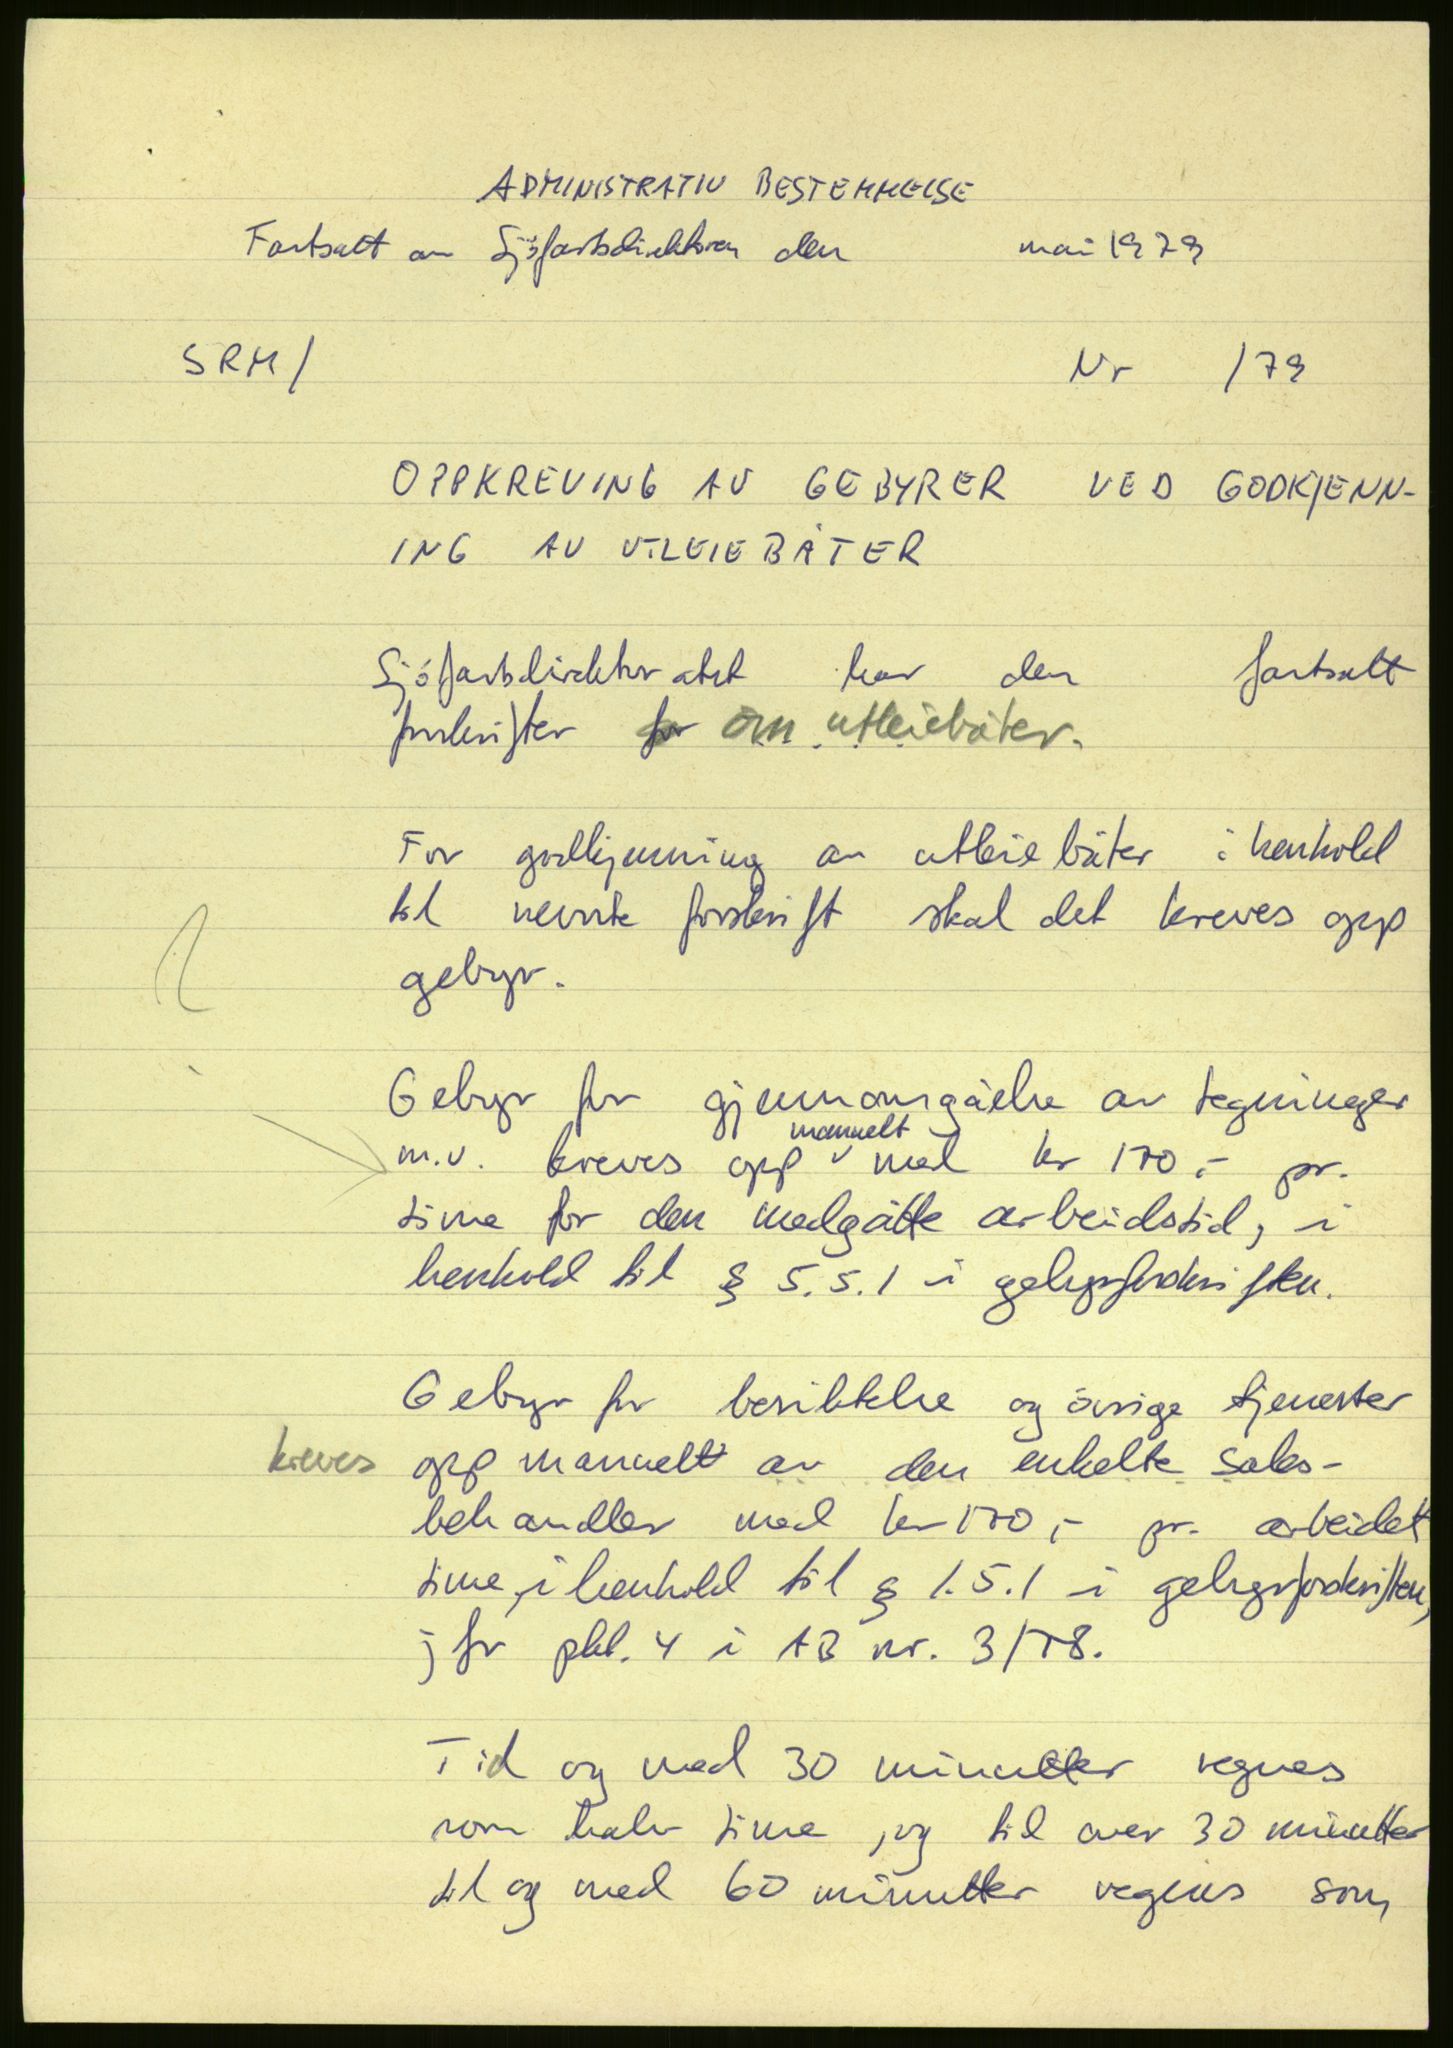 ADMINISTRATIV BESTEMMELSE
Fastsatt av Sjöfartsdirektoren den mai 1979
SRM/ Nr /79
OPPKREVING AV GEBYRER VED GODKJENN-
ING AV UTLEIEBÅTER
Sjöfartsdirektoratet har den fastsatt
forskrifter for om utleiebåter.
For godkjenning av utleiebåter i henhold
til nevnte forskrift skal det kreves opp
gebyr.
Gebyr for gjennomgåelse av tegninger
manuelt
m.v. kreves opp med kr 170,- pr.
time for den medgåtte arbeidstid, i
henhold til § 5.5.1 i gebyrforskriften.
Gebyr for besiktelse og övrige tjenester
kreves opp manuelt av den enkelte saks-
behandler med kr 170,- pr. arbeidet
time, i henhold til § 1.5.1 i gebyrforskriften,
jfr pkt. 4 i AB nr. 3/78.
Tid og med 30 minutter regnes
som halv time, og tid over 30 minutter
til og med 60 minutter regnes som